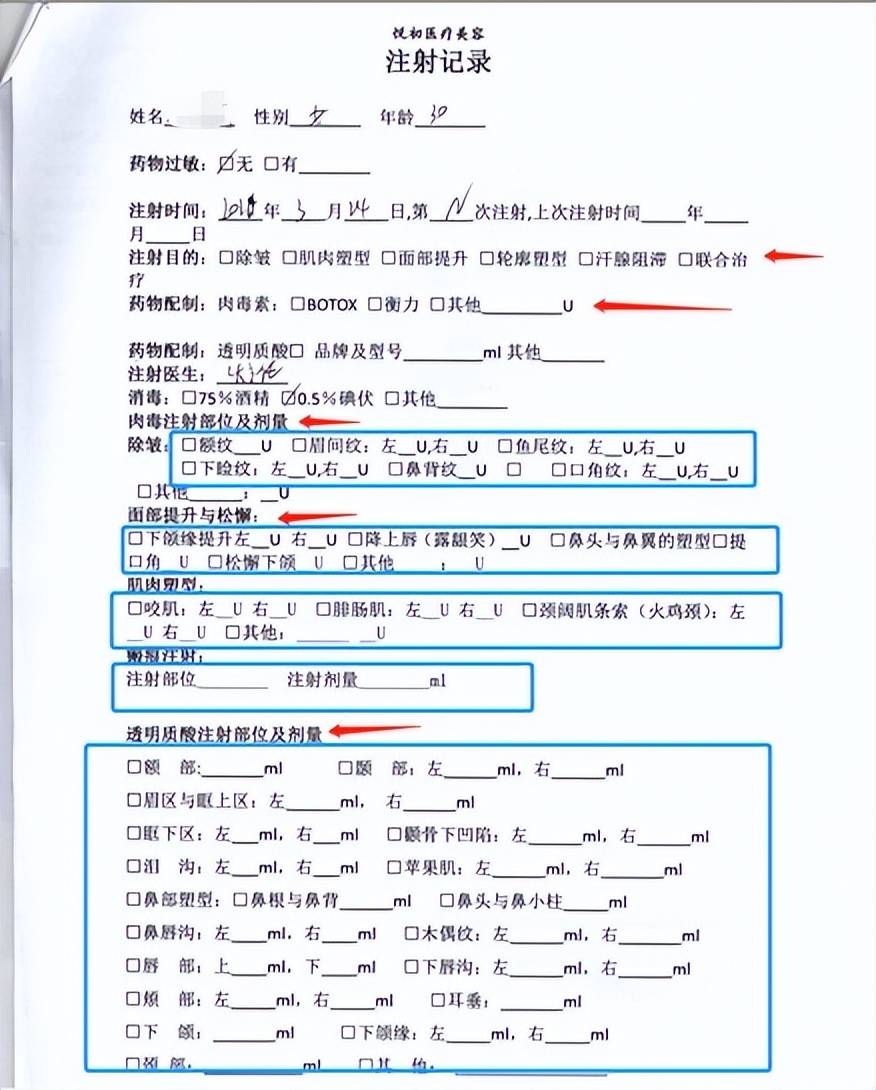 悦初医疗美容
注射记录
姓名 性别 女 年龄 30
药物过敏：☑无 □有
注射时间： 年 3 月 24 日,第 N 次注射,上次注射时间____年____
月____日
注射目的：□除皱 □肌肉塑型 □面部提升 □轮廓塑型 □汗腺阻滞 □联合治
疗
药物配制：肉毒素：□BOTOX □衡力 □其他________U
药物配制：透明质酸□ 品牌及型号________ml 其他______
注射医生：
消毒：□75%酒精 ☑0.5%碘伏 □其他_______
肉毒注射部位及剂量
除皱：□额纹___U □眉间纹：左__U,右__U □鱼尾纹：左__U,右__U
□下睑纹：左__U,右__U □鼻背纹__U □ □口角纹：左__U,右__U
□其他_____：__U
面部提升与松懈：
□下颌缘提升左__U 右__U □降上唇（露龈笑）__U □鼻头与鼻翼的塑型□提
□角__U □松懈下颌__U □其他____：__U
肌肉塑型：
□咬肌：左__U 右__U □腓肠肌：左__U 右__U □颈阔肌条索（火鸡颈）：左
__U 右__U □其他：_____ __U
瘢痕注射：
注射部位_______ 注射剂量_______ml
透明质酸注射部位及剂量
□额 部:______ml □颞 部：左_____ml，右_____ml
□眉区与眶上区：左_____ml， 右_____ml
□眶下区：左___ml，右___ml □颧骨下凹陷：左_____ml，右_____ml
□泪 沟：左___ml，右___ml □苹果肌：左_____ml，右_____ml
□鼻部塑型：□鼻根与鼻背_____ml □鼻头与鼻小柱____ml
□鼻唇沟：左___ml，右___ml □木偶纹：左_____ml，右______ml
□唇 部：上___ml，下___ml □下唇沟：左_____ml，右_____ml
□颊 部：左____ml，右____ml □耳垂：______ml
□下 颌：______ml □下颌缘：左____ml，右____ml
□颈 部：________ml □其 他：________